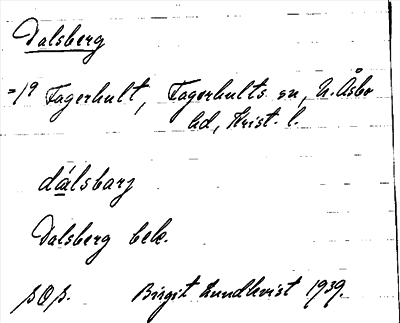 Dalsberg
=19 Fagerhult, Fagerhults sn, N. Åsbo
hd, Krist. l.
dálsbarj
Dalsberg beb.
Birgit Lundkvist 1939.